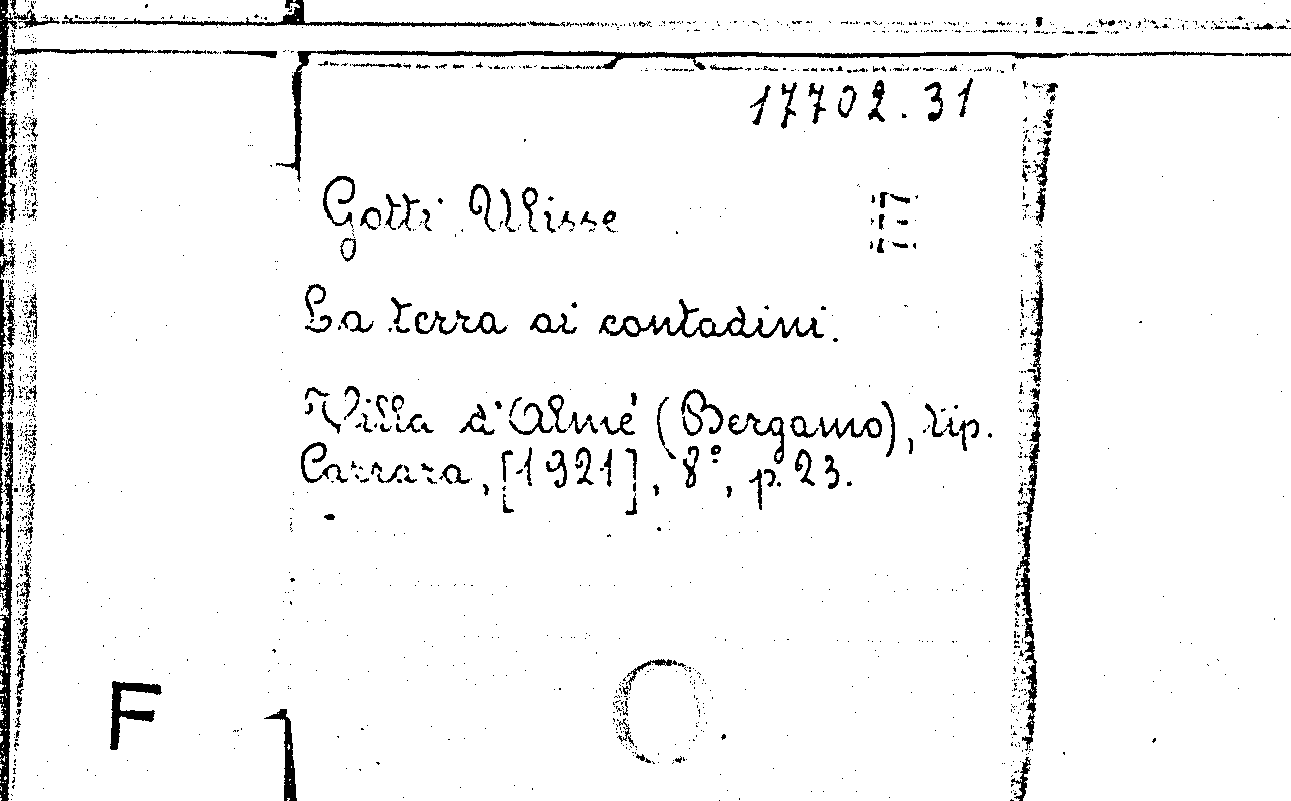 17702.31
Gotti Ulisse
La terra ai contadini.
Villa d'Almé (Bergamo), tip.
Carrara, [1921], 8°, p. 23.
F